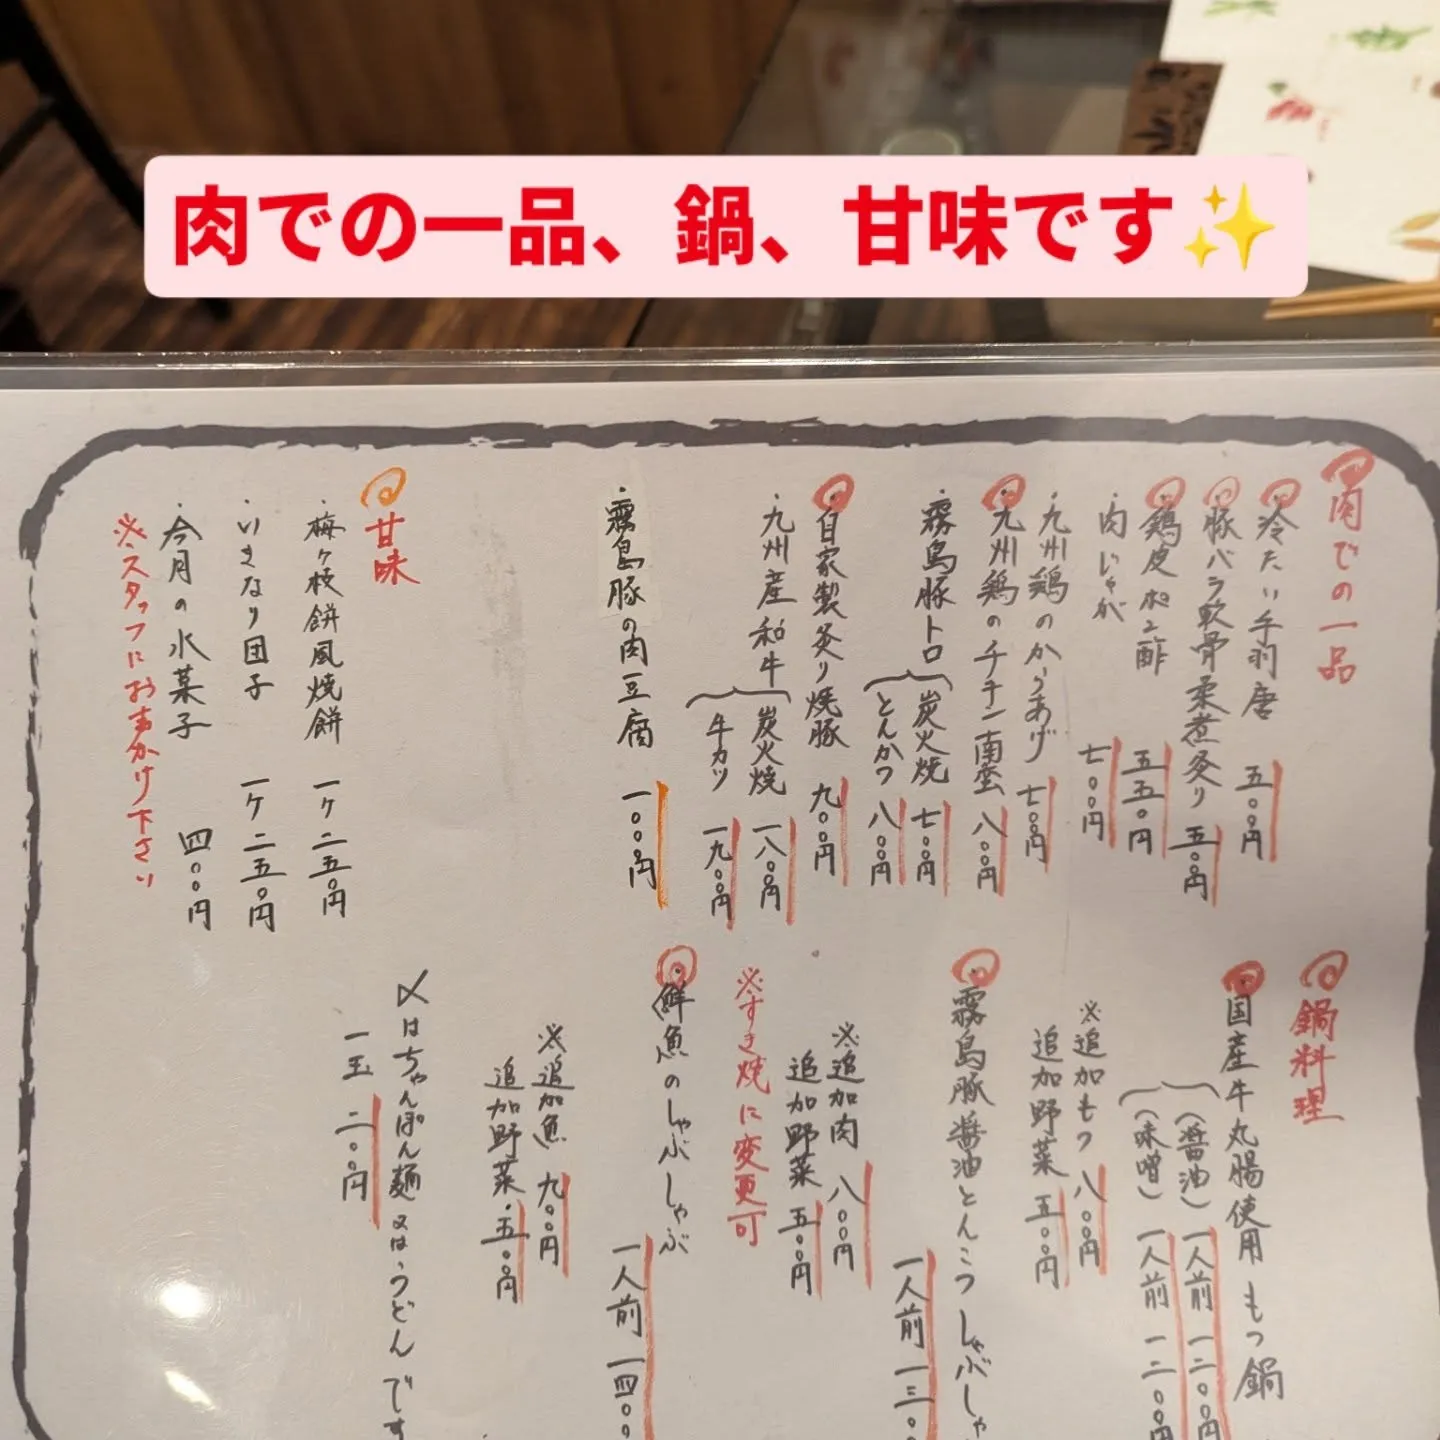 肉での一品、鍋、甘味です✨
肉での一品
冷たい手羽唐 五〇〇円
豚バラ軟骨柔煮炙り 五五〇円
鶏皮ポン酢 五五〇円
・肉じゃが 七〇〇円
・九州鶏のからあげ 七〇〇円
九州鶏のチキン南蛮 八〇〇円
・霧島豚トロ
炭火焼 七〇〇円
とんかつ 八〇〇円
自家製炙り焼豚 九〇〇円
・九州産和牛
炭火焼 一八〇〇円
牛カツ 一九〇〇円
・霧島豚の肉豆腐 一〇〇〇円
甘味
・梅ヶ枝餅風焼餅 一ケ二五〇円
・いきなり団子 一ケ二五〇円
・今月の水菓子 四〇〇円
※スタッフにお声かけ下さい
鍋料理
国産牛丸腸使用もつ鍋
(醤油) 一人前 一二〇〇円
(味噌) 一人前 一二〇〇円
※追加もつ 八〇〇円
追加野菜 五〇〇円
霧島豚醤油とんこつしゃぶしゃ
一人前 一三〇
※追加肉 八〇〇円
追加野菜 五〇〇円
※すき焼に変更可
鮮魚のしゃぶしゃぶ
一人前 一四〇〇
※追加魚 九〇〇円
追加野菜・五〇〇円
〆はちゃんぽん麺又はうどんです
一玉 二〇〇円